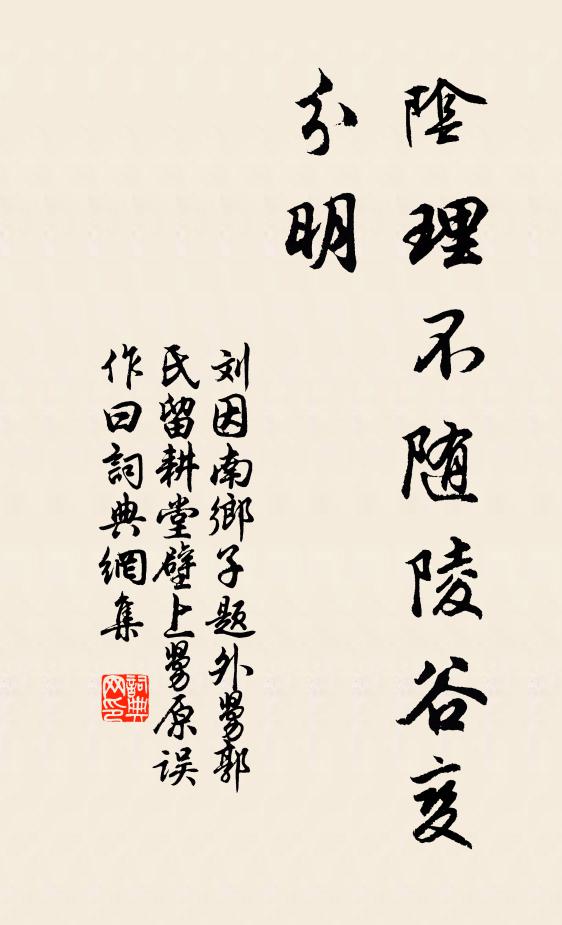 陰理不随陵谷变
分明
刘因南鄉子题外舅郭
氏留耕堂壁上舅原误
作曰詞典網集
詞典网印